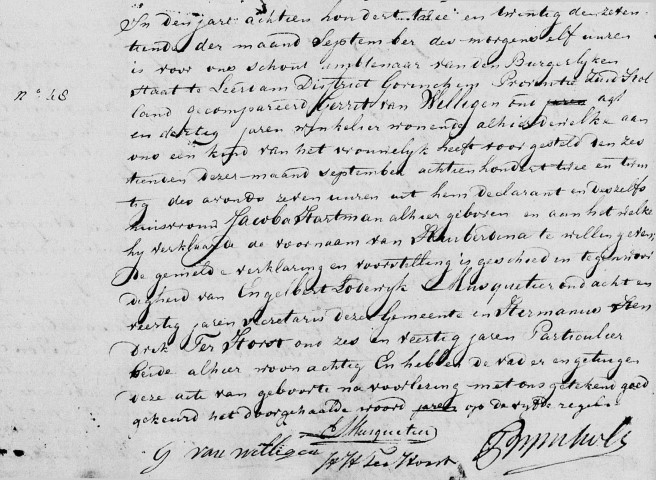 In den jare achtien hondert twee en twintig den zeven-
tiende der maand September des morgens elf uuren
is voor ons schout ambtenaar van den Burgerlyken
staat te Leerdam District Gorinchem Provintie Zuid Hol
N° 48 land gecompareerd Gerrit van Willigen oud jaren agt
en dertig jaren winkelier wonende alhier dewelke aan
ons een kind van het vrouwelyk heeft voorgesteld den zes
tienden dezer maand september achtienhondert twee en twin
tig des avonds zeven uuren uit hem declarant en deszelfs
huisvrouw Jacoba Hartman alhier geboren en aan het welke
hy verklaarde de voornaam van Huiberdina te willen geven,
De gemelde verklaring en voorstelling is geschied in tegenwoor
digheid van Engelbert Lodewyk Musquetier oud acht en
veertig jaren secretaris dezer Gemeente en Hermanus Hen
drik Ter Horst oud zes en veertig jaren Particulier
beide alhier woonachtig En hebben de vader en getuigen
deze acte van geboorte na voorlezing met ons getekend goed
gekeurd het doorgehaalde woord jaren op de vyfde regel
E L Musquetier
G van willigen H H Ter Horst